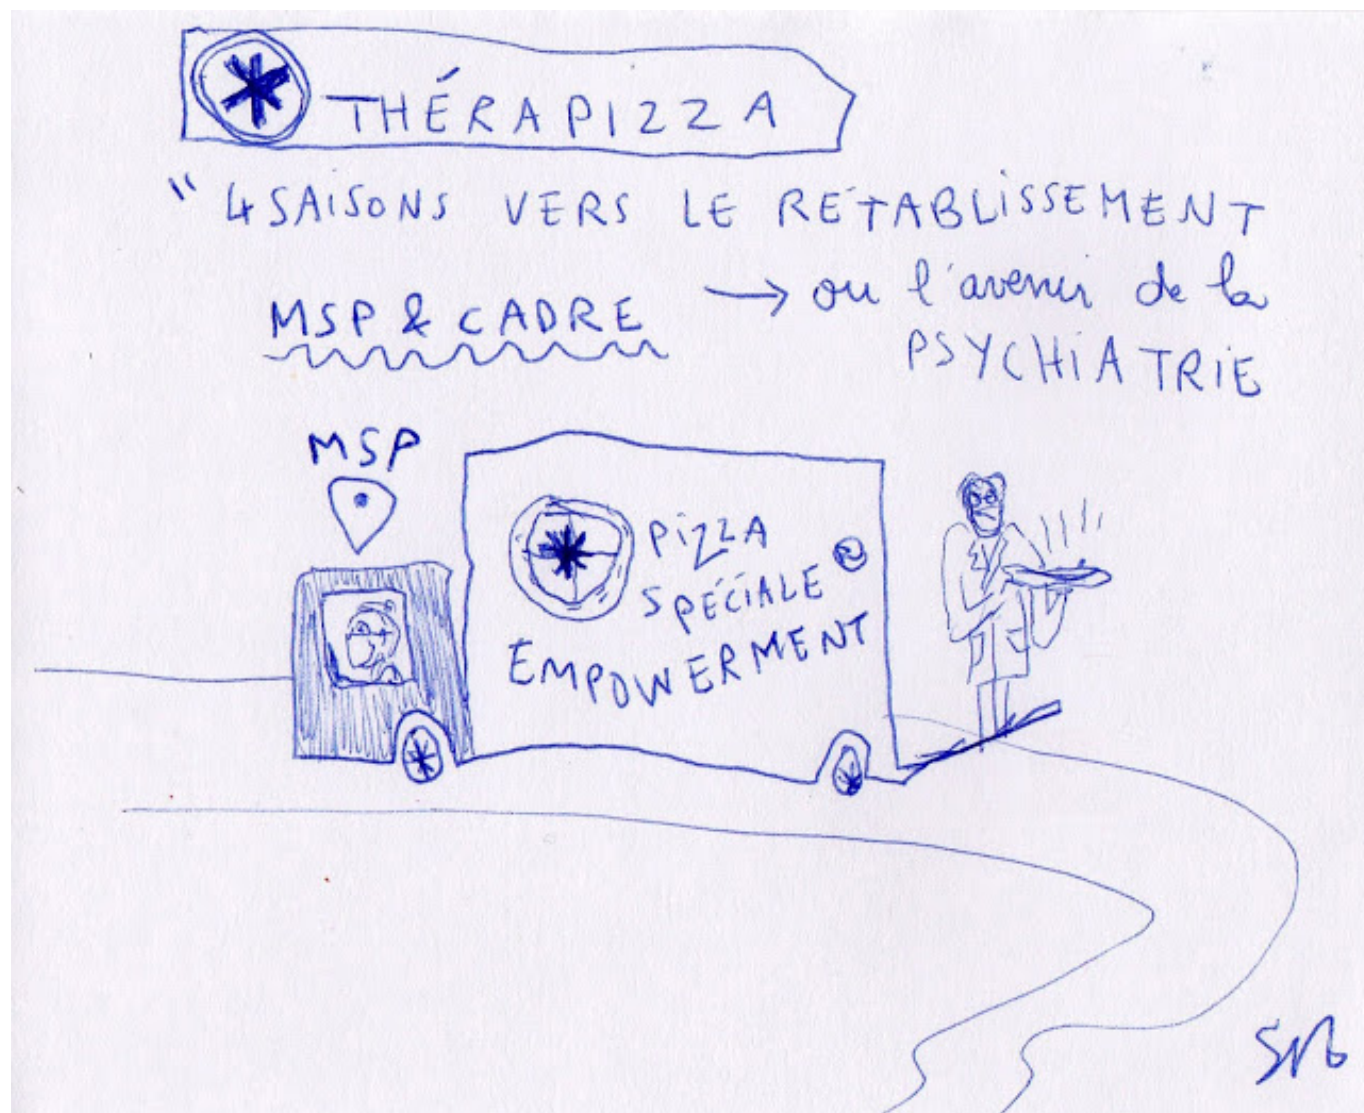 THÉRAPIZZA
" 4 SAISONS VERS LE RÉTABLISSEMENT
→ ou l'avenir de la
PSYCHIATRIE
MSP & CADRE
MSP
PIZZA
SPÉCIALE
EMPOWERMENT